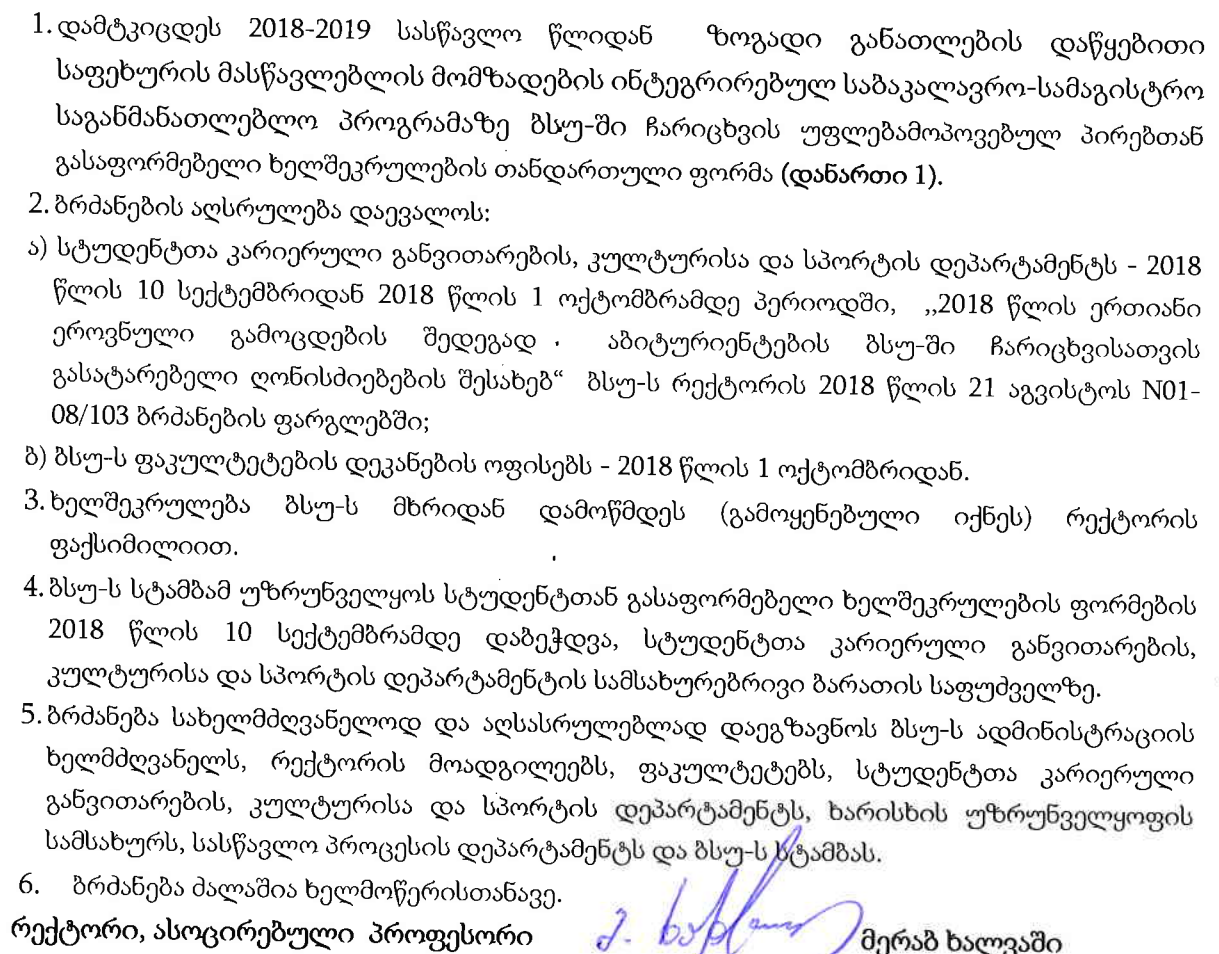 1. დამტკიცდეს 2018-2019 სასწავლო წლიდან ზოგადი განათლების დაწყებითი
საფეხურის მასწავლებლის მომზადების ინტეგრირებულ საბაკალავრო-სამაგისტრო
საგანმანათლებლო პროგრამაზე ბსუ-ში ჩარიცხვის უფლებამოპოვებულ პირებთან
გასაფორმებელი ხელშეკრულების თანდართული ფორმა (დანართი 1).
2. ბრძანების აღსრულება დაევალოს:
ა) სტუდენტთა კარიერული განვითარების, კულტურისა და სპორტის დეპარტამენტს - 2018
წლის 10 სექტემბრიდან 2018 წლის 1 ოქტომბრამდე პერიოდში, ,,2018 წლის ერთიანი
ეროვნული გამოცდების შედეგად აბიტურიენტების ბსუ-ში ჩარიცხვისათვის
გასატარებელი ღონისძიებების შესახებ“ ბსუ-ს რექტორის 2018 წლის 21 აგვისტოს N01-
08/103 ბრძანების ფარგლებში;
ბ) ბსუ-ს ფაკულტეტების დეკანების ოფისებს - 2018 წლის 1 ოქტომბრიდან.
3. ხელშეკრულება ბსუ-ს მხრიდან დამოწმდეს (გამოყენებული იქნეს) რექტორის
ფაქსიმილიით.
4. ბსუ-ს სტამბამ უზრუნველყოს სტუდენტთან გასაფორმებელი ხელშეკრულების ფორმების
2018 წლის 10 სექტემბრამდე დაბეჭდვა, სტუდენტთა კარიერული განვითარების,
კულტურისა და სპორტის დეპარტამენტის სამსახურებრივი ბარათის საფუძველზე.
5. ბრძანება სახელმძღვანელოდ და აღსასრულებლად დაეგზავნოს ბსუ-ს ადმინისტრაციის
ხელმძღვანელს, რექტორის მოადგილეებს, ფაკულტეტებს, სტუდენტთა კარიერული
განვითარების, კულტურისა და სპორტის დეპარტამენტს, ხარისხის უზრუნველყოფის
სამსახურს, სასწავლო პროცესის დეპარტამენტს და ბსუ-ს სტამბას.
6. ბრძანება ძალაშია ხელმოწერისთანავე.
რექტორი, ასოცირებული პროფესორი მერაბ ხალვაში